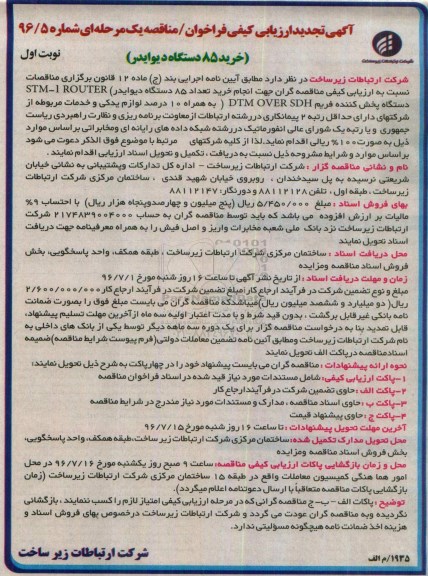 آگهی تجدید ارزیابی کیفی فراخوان/مناقصه یک مرحله ای شماره ۹۶/۵
(خرید ۸۵ دستگاه دیوایدر)
نوبت اول
شرکت ارتباطات زیرساخت
شرکت ارتباطات زیرساخت در نظر دارد مطابق آیین نامه اجرایی بند (ج) ماده ۱۲ قانون برگزاری مناقصات
نسبت به ارزیابی کیفی مناقصه گران جهت انجام خرید تعداد ۸۵ دستگاه دیوایدر) STM-1 ROUTER
دستگاه پخش کننده فریم DTM OVER SDH ) به همراه ۱۰ درصد لوازم یدکی و خدمات مربوطه از
شرکتهای دارای حداقل رتبه ۲ پیمانکاری در رشته ارتباطات از معاونت برنامه ریزی و نظارت راهبردی ریاست
جمهوری و یا رتبه یک شورای عالی انفورماتیک در رشته شبکه داده های رایانه ای و مخابراتی بر اساس موارد
ذیل به صورت ۱۰۰٪ ریالی اقدام نماید. لذا از کلیه شرکتهای مرتبط با موضوع فوق الذکر دعوت می شود
بر اساس موارد و شرایط مشروحه ذیل نسبت به دریافت ، تکمیل و تحویل اسناد ارزیابی اقدام نمایند.
نام و نشانی مناقصه گزار : شرکت ارتباطات زیرساخت - اداره کل تدارکات وپشتیبانی به نشانی خیابان
شریعتی نرسیده به پل سیدخندان ، روبروی خیابان شهید قندی ، ساختمان مرکزی شرکت ارتباطات
زیرساخت ، طبقه اول ، تلفن ۸۸۱۱۲۱۲۸ و دورنگار: ۸۸۱۱۲۱۴۷
بهای فروش اسناد : مبلغ ۵/۴۵۰/۰۰۰ ریال (پنج میلیون و چهارصدوپنجاه هزار ریال) با احتساب ۹%
مالیات بر ارزش افزوده می باشد که باید توسط مناقصه گران به حساب ۲۱۷۴۸۲۹۰۰۴۰۰۰ شرکت
ارتباطات زیرساخت نزد بانک ملی شعبه مخابرات واریز و اصل فیش را به همراه معرفینامه جهت دریافت
اسناد تحویل نمایند
محل دریافت اسناد : ساختمان مرکزی شرکت ارتباطات زیرساخت ، طبقه همکف، واحد پاسخگویی، بخش
فروش اسناد مناقصه ومزایده
زمان و مهلت دریافت اسناد : از تاریخ نشر آگهی تا ساعت ۱۶ روز شنبه مورخ ۹۶/۷/۱
مبلغ و نوع تضمین شرکت در فرآیند ارجاع کار: مبلغ تضمین شرکت در فرآیند ارجاع کار ۲/۶۰۰/۰۰۰/۰۰۰
ریال( دو میلیارد و ششصد میلیون ریال) میباشدکه مناقصه گران می بایست مبلغ فوق را بصورت ضمانت
نامه بانکی غیرقابل برگشت ، بدون قید شرط و با مدت اعتبار اولیه سه ماه از آخرین مهلت تسلیم پیشنهاد،
قابل تمدید بنا به درخواست مناقصه گزار برای یک دوره سه ماهه دیگر توسط یکی از بانک های داخلی به
نام شرکت ارتباطات زیرساخت ومطابق آئین نامه تضمین معاملات دولتی(فرم پیوست شرایط مناقصه)ضمیمه
اسنادمناقصه درپاکت الف تحویل نمایند
نحوه ارائه پیشنهادات : مناقصه گران می بایست پیشنهاد خود را در چهارپاکت به شرح ذیل تحویل نمایند:
۱-پاکت ارزیابی کیفی : شامل مستندات مورد نیاز قید شده در اسناد فراخوان مناقصه
۲-پاکت الف : حاوی تضمین شرکت در فرآیندارجاع کار
۳-پاکت ب : حاوی اسناد مناقصه ، مدارک و مستندات مورد نیاز مندرج در شرایط مناقصه
۴-پاکت ج : حاوی پیشنهاد قیمت
آخرین مهلت تحویل پیشنهادات : تا ساعت ۱۶ روز شنبه مورخ ۹۶/۷/۱۵
محل تحویل مدارک تکمیل شده: ساختمان مرکزی شرکت ارتباطات زیر ساخت ، طبقه همکف، واحد پاسخگویی،
بخش فروش اسناد مناقصه ومزایده
محل و زمان بازگشایی پاکات ارزیابی کیفی مناقصه: ساعت ۹ صبح روز یکشنبه مورخ ۹۶/۷/۱۶ در محل
امور هما هنگی کمیسیون معاملات واقع در طبقه ۱۵ ساختمان مرکزی شرکت ارتباطات زیرساخت (زمان
بازگشایی پاکات مناقصه متعاقباً با ارسال دعوتنامه اعلام میگردد).
توضیح : پاکات الف - ب - ج مناقصه گرانی که در مرحله ارزیابی کیفی امتیاز لازم را کسب ننمایند ، بازگشائی
نگردیده وبه مناقصه گران عودت می گردد و شرکت ارتباطات زیرساخت درخصوص بهای فروش اسناد و
هزینه اخذ ضمانت نامه هیچگونه مسؤلیتی ندارد.
شرکت ارتباطات زیر ساخت
۱۹۳۵/م الف